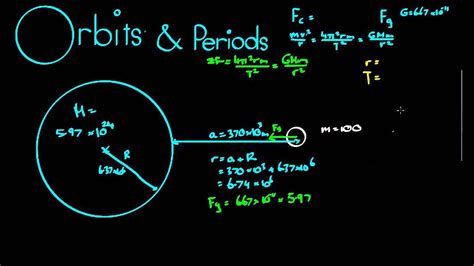 Orbits & Periods
Fc =
Fg
G=6.67×10⁻¹¹
mv²/r = 4π²rm/T² = GMm/r²
ΣF = 4π²rm/T² = GMm/r²
r =
T =
M =
5.97×10²⁴
R
6.37×10⁶
a = 370×10³m
Fg
m=100
r = a + R
= 370×10³ + 6.37×10⁶
= 6.74×10⁶
Fg = 6.67×10⁻¹¹ × 5.97